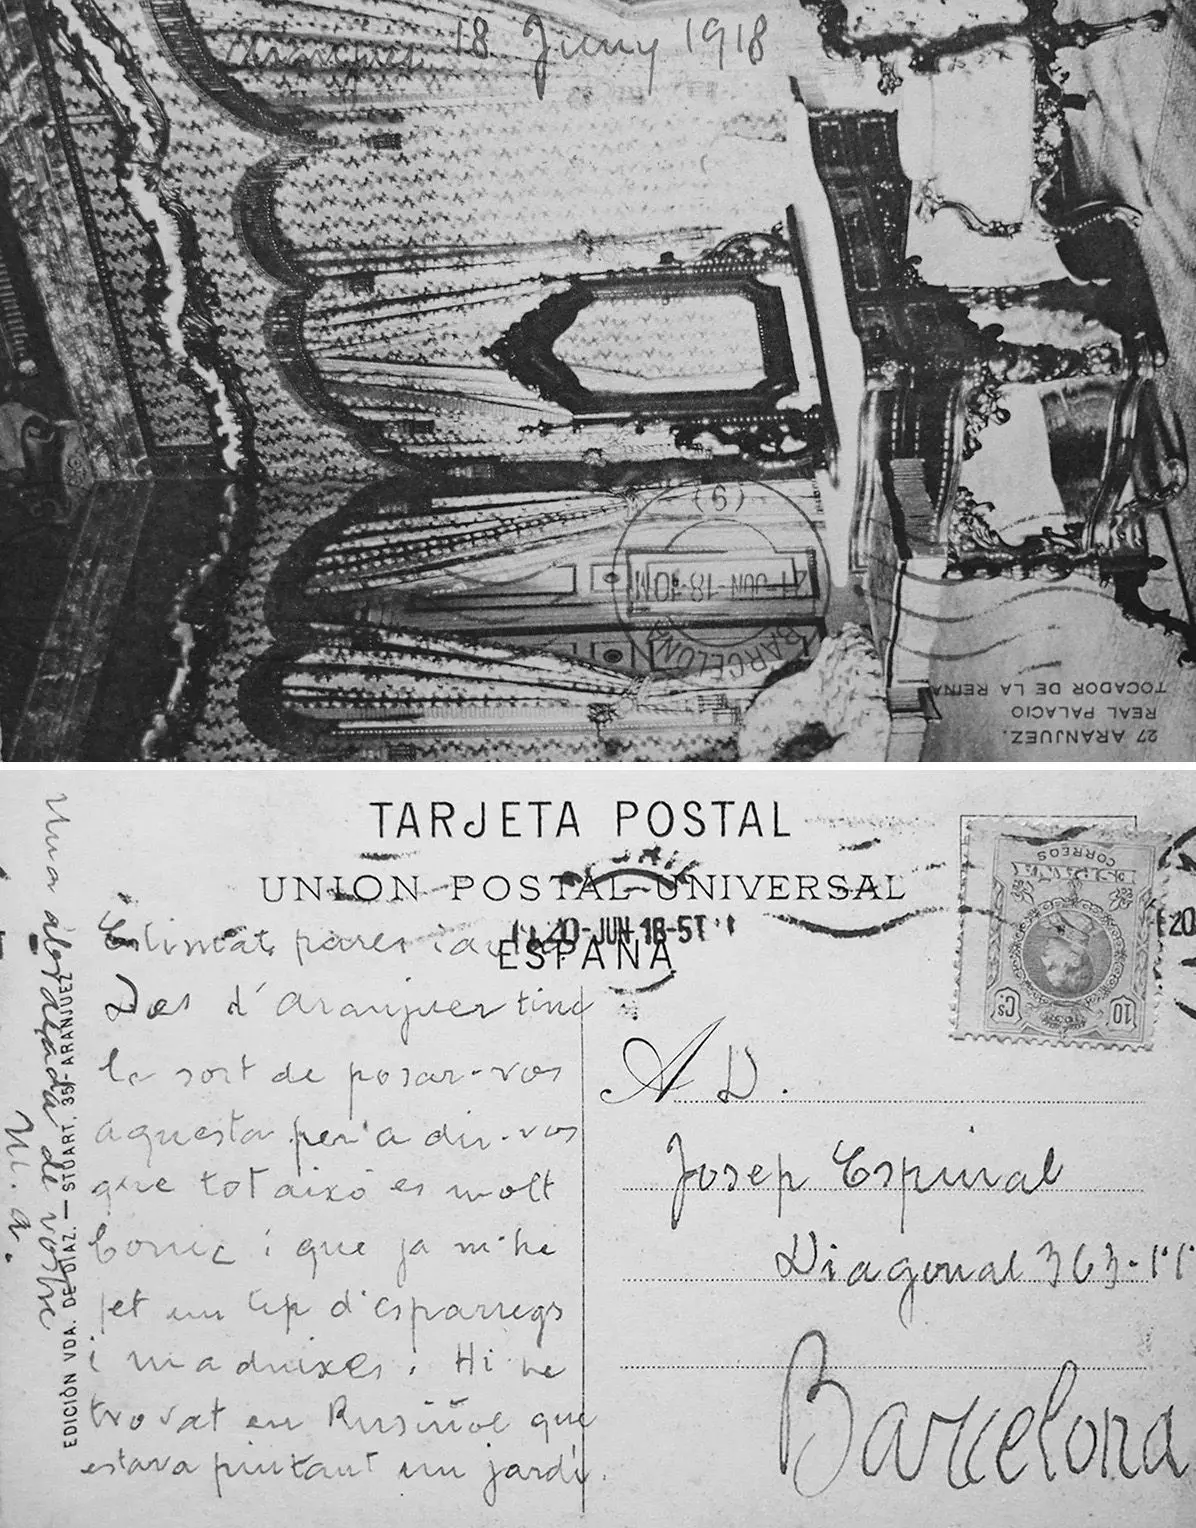 Aranjuez 18 Juny 1918
(6)
21-JUN-18-10M
BARCELONA
27 ARANJUEZ.
REAL PALACIO
TOCADOR DE LA REINA
TARJETA POSTAL
UNION POSTAL UNIVERSAL
ESPAÑA
20-JUN-18-5T
CORREOS
10 Cs
10
20
Estimats pares i
Des d'Aranjuez tinc
la sort de posar-vos
aquesta per a dir-vos
que tot això es molt
bonic i que ja m'he
fet un tip d'esparregs
i maduixes. Hi he
trovat en Rusiñol que
estava pintant un jardí.
Una abraçada de vostre
M. A.
EDICIÓN VDA. DE DÍAZ. — STUART, 35, ARANJUEZ
A D.
Josep Espinal
Diagonal 363-
Barcelona